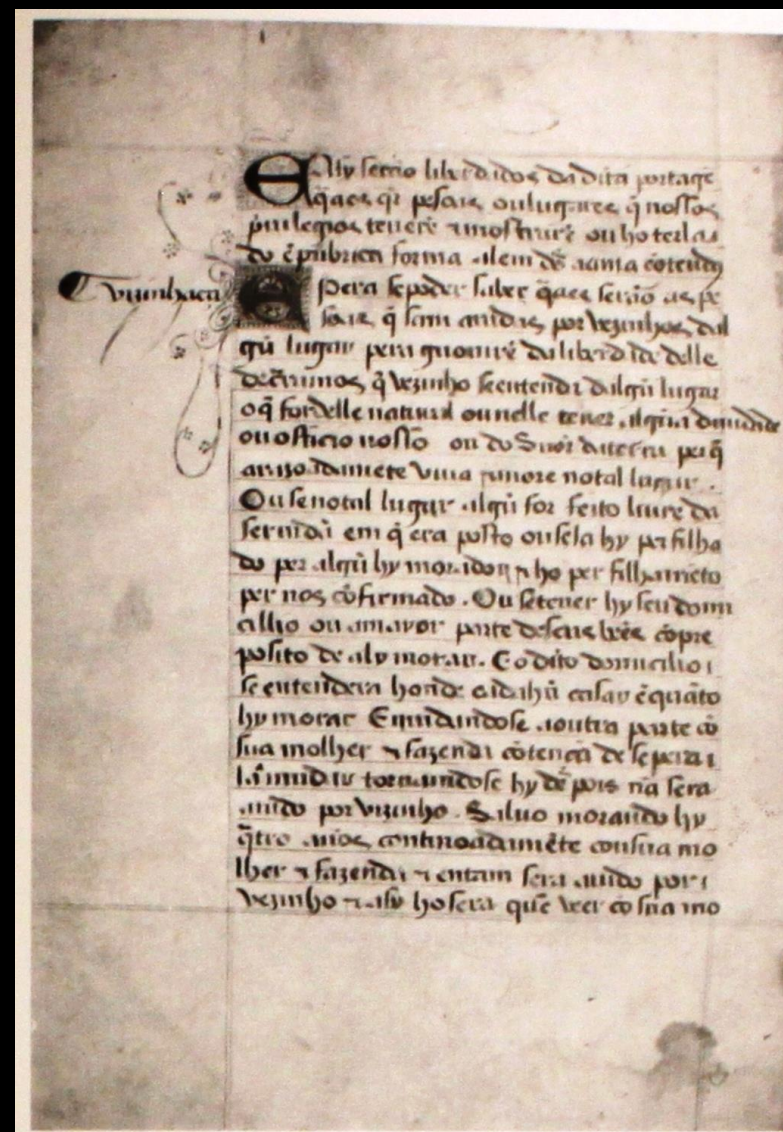 E Aſy ſerão liberdados da dita portagẽ
q̃aes q̃r peſoas ou lugares q̃ noſſos
priuilegios teuerẽ ⁊ moſtrarẽ ou ho terlado
ẽ pubrica forma alem dos açima cõtendos
¶ vizinhança
E pera ſe poder ſaber q̃aes ſerão as pe
ſoas q̃ ſam auidas por vezinhos dal
gũ lugar pera guouuirẽ da liberdade delle
decrramos q̃ vezinho ſe entenda dalgũ lugar
o q̃ for delle natural ou nelle tener algũa dinidade
ou officio noſſo ou do Snõr da terra per q̃
arrazoadamẽte viua ⁊ more no tal lugar .
Ou ſe no tal lugar algũ for feito liure da
ſeruidũ em q̃ era poſto ou ſeia hy perfilha
do per algũ hy morador ⁊ ho perfilhamẽto
per nos cõfirmado . Ou ſe tener hy ſeu domi
cilio ou a mayor parte de ſeus bẽes cõ pre
poſito de aly morar . E o dito domicilio
ſe entendera honde cada hũ caſar ẽquãto
hy morar E mudandoſe a outra parte cõ
ſua molher ⁊ fazenda cõ tençã de ſe pera
la mudar tornandoſe hy deſpois nã ſera
auido por vizinho . Saluo morando hy
q̃tro anos continoadamẽte com ſua mo
lher ⁊ fazenda ⁊ entam ſera auido por
vezinho ⁊ aſy ho ſera quẽ veer cõ ſua mo